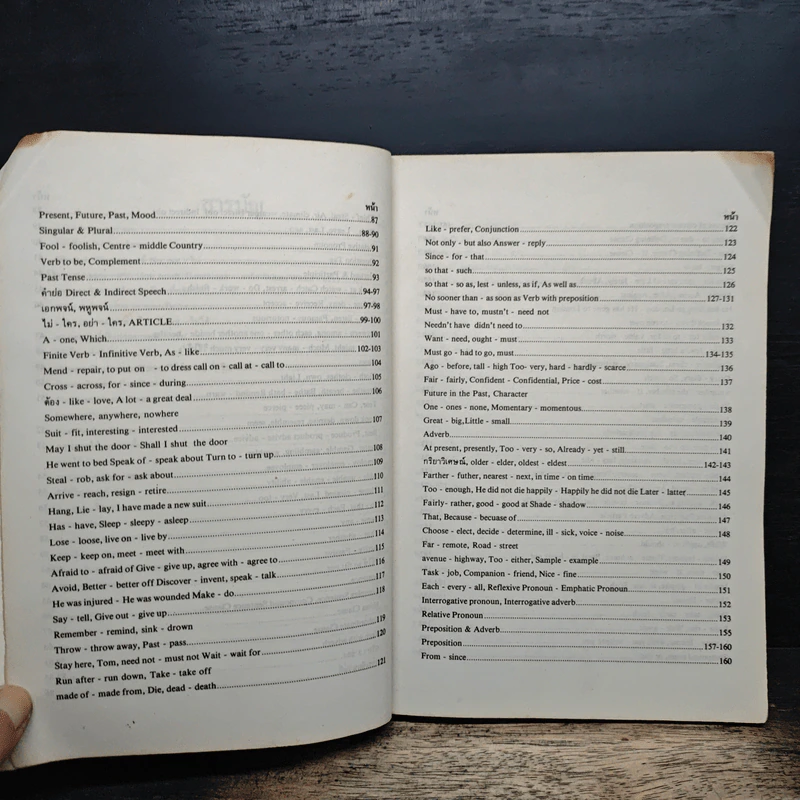 หน้า
Present, Future, Past, Mood 87
Singular & Plural 88-90
Fool - foolish, Centre - middle Country 91
Verb to be, Complement 92
Past Tense 93
คำย่อ Direct & Indirect Speech 94-97
เอกพจน์, พหูพจน์ 97-98
ไม่ - ใคร, อย่า - ใคร, ARTICLE 99-100
A - one, Which 101
Finite Verb - Infinitive Verb, As - like 102-103
Mend - repair, to put on - to dress call on - call at - call to 104
Cross - across, for - since - during 105
ต้อง - like - love, A lot - a great deal 106
Somewhere, anywhere, nowhere
Suit - fit, interesting - interested 107
May I shut the door - Shall I shut the door
He went to bed Speak of - speak about Turn to - turn up 108
Steal - rob, ask for - ask about 109
Arrive - reach, resign - retire 110
Hang, Lie - lay, I have made a new suit 111
Has - have, Sleep - sleepy - asleep 112
Lose - loose, live on - live by 113
Keep - keep on, meet - meet with 114
Afraid to - afraid of Give - give up, agree with - agree to 115
Avoid, Better - better off Discover - invent, speak - talk 116
He was injured - He was wounded Make - do 117
Say - tell, Give out - give up 118
Remember - remind, sink - drown
Throw - throw away, Past - pass 119
Stay here, Tom, need not - must not Wait - wait for 120
Run after - run down, Take - take off
made of - made from, Die, dead - death 121
หน้า
Like - prefer, Conjunction 122
Not only - but also Answer - reply 123
Since - for - that 124
so that - such 125
so that - so as, lest - unless, as if, As well as 126
No sooner than - as soon as Verb with preposition 127-131
Must - have to, mustn't - need not
Needn't have didn't need to 132
Want - need, ought - must 133
Must go - had to go, must 134-135
Ago - before, tall - high Too- very, hard - hardly - scarce 136
Fair - fairly, Confident - Confidential, Price - cost 137
Future in the Past, Character
One - ones - none, Momentary - momentous 138
Great - big,Little - small 139
Adverb 140
At present, presently, Too - very - so, Already - yet - still 141
กริยาวิเศษณ์, older - elder, oldest - eldest 142-143
Farther - futher, nearest - next, in time - on time 144
Too - enough, He did not die happily - Happily he did not die Later - latter 145
Fairly- rather, good - good at Shade - shadow 146
That, Because - becuase of 147
Choose - elect, decide - determine, ill - sick, voice - noise 148
Far - remote, Road - street
avenue - highway, Too - either, Sample - example 149
Task - job, Companion - friend, Nice - fine 150
Each - every - all, Reflexive Pronoun - Emphatic Pronoun 151
Interrogative pronoun, Interrogative adverb 152
Relative Pronoun 153
Preposition & Adverb 155
Preposition 157-160
From - since 160